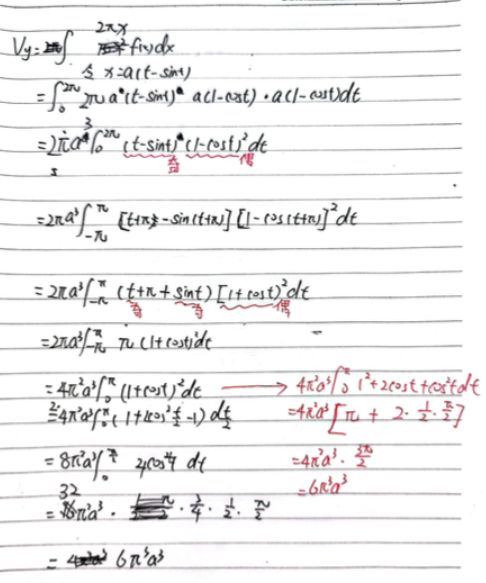 Vy = ∫ 2πx f(x)dx
令 x=a(t-sint)
= ∫₀^2π 2π a(t-sint) a(1-cost)·a(1-cost)dt
= 2πa³∫₀^2π (t-sint)(1-cost)²dt
奇 偶
= 2πa³∫_-π^π [t+π - sin(t+π)][1-cos(t+π)]²dt
= 2πa³∫_-π^π (t+π+sint)[1+cost]²dt
奇 奇 偶
= 2πa³∫_-π^π π(1+cost)²dt
= 4π²a³∫₀^π (1+cost)²dt → 4π²a³∫₀^π 1²+2cost+cos²t dt
= 4π²a³∫₀^π (1+2cos²t/2-1) dt/2 =4π²a³[π + 2·1/2·π/2]
= 8π²a³∫₀^π/2 4cos⁴t dt =4π²a³·3π/2
=6π³a³
= 32π²a³ · 3/4 · 1/2 · π/2
= 6π³a³